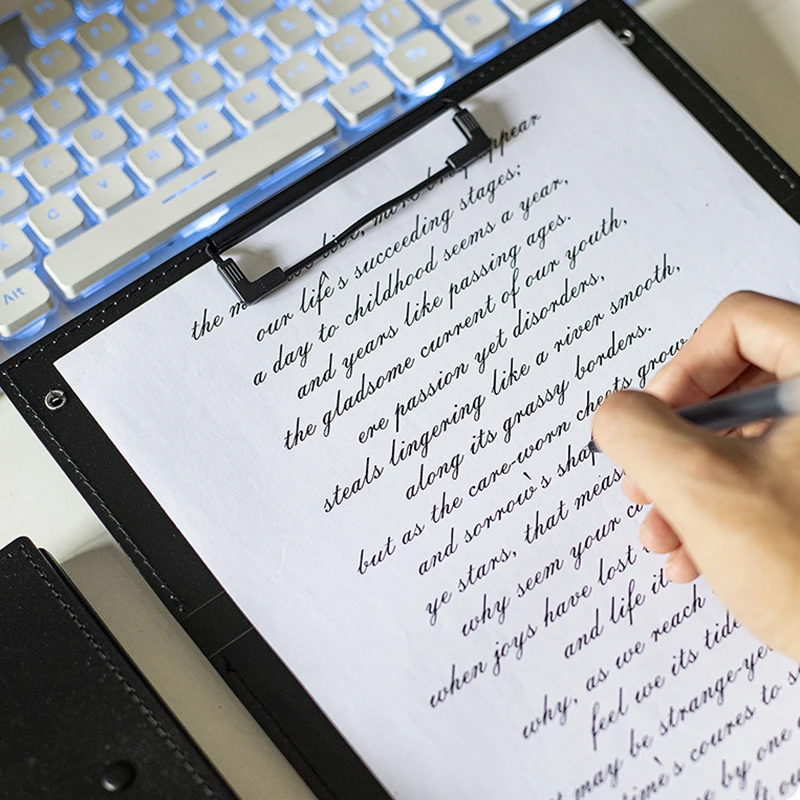 Alt
Alt
the live, more appear
our life's succeeding stages;
a day to childhood seems a year,
and years like passing ages.
the gladsome current of our youth,
ere passion yet disorders,
steals lingering like a river smooth,
along its grassy borders.
but as the care-worn cheets grow
and sorrow's
ye stars, that
why seem your
when joys have lost
and life
why, as we reach
feel we its
may be
time's coures to
by one